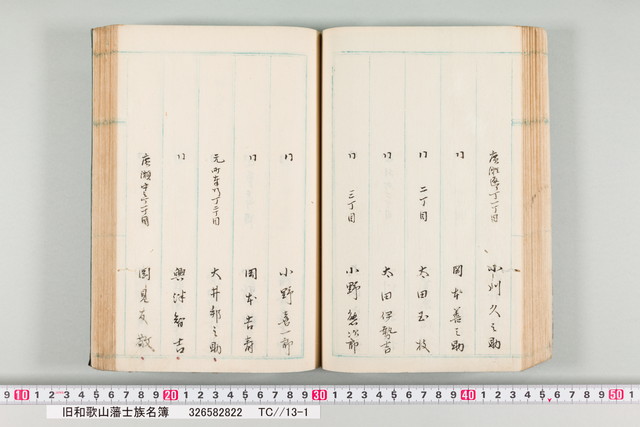 広瀬通丁一丁目
小川久之助
〃
岡本善之助
〃 二丁目
太田玉枝
〃
太田伊勢吉
〃 三丁目
小野德次郎
〃
小野喜一郎
〃
岡本吉
元町奉行丁二丁目
大井邦之助
〃
興津智吉
広瀬中ノ丁一丁目
岡見友敬
9 10 1 2 3 4 5 6 7 8 9 20 1 2 3 4 5 6 7 8 9 30 1 2 3 4 5 6 7 8 9 40 1 2 3 4 5 6 7 8 9 50
旧和歌山藩士族名簿 326582822 TC//13-1